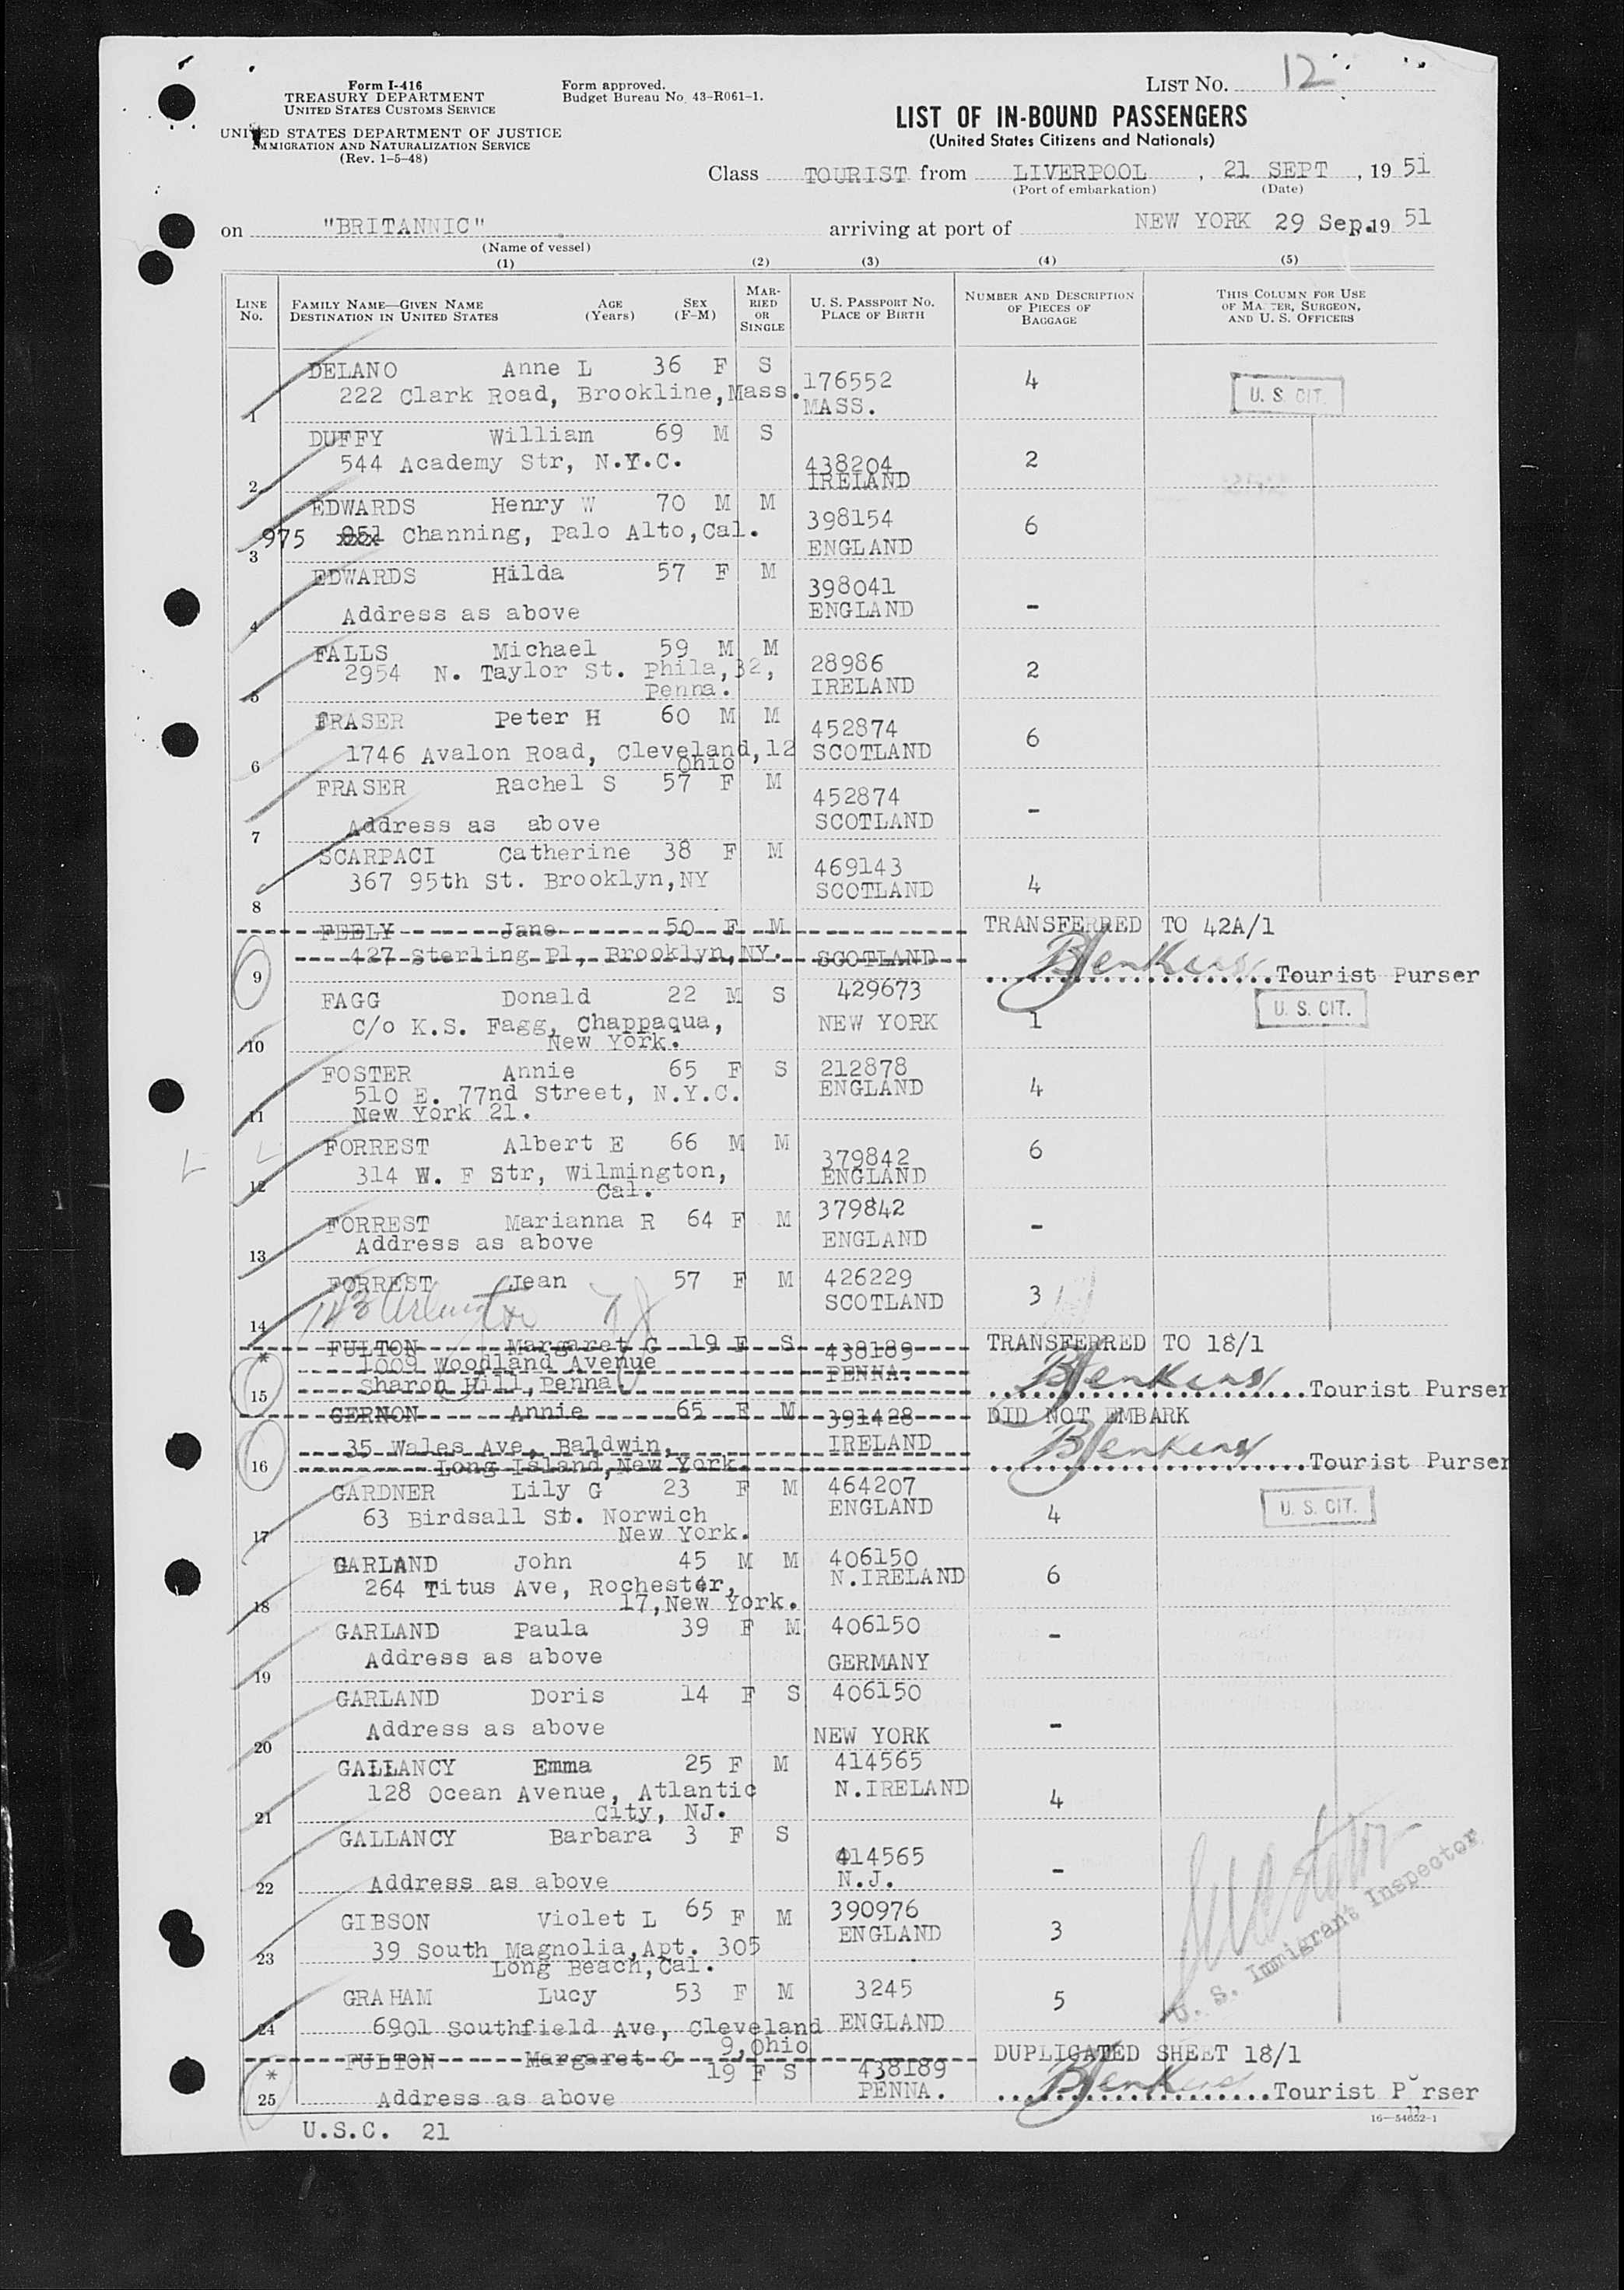 Form I-416
TREASURY DEPARTMENT
UNITED STATES CUSTOMS SERVICE
UNITED STATES DEPARTMENT OF JUSTICE
IMMIGRATION AND NATURALIZATION SERVICE
(Rev. 1-5-48)
Form approved.
Budget Bureau No. 43-R061-1.
LIST NO. 12
LIST OF IN-BOUND PASSENGERS
(United States Citizens and Nationals)
Class TOURIST from LIVERPOOL, 21 SEPT, 19 51
(Port of embarkation) (Date)
on "BRITANNIC" arriving at port of NEW YORK 29 Sep. 19 51
(Name of vessel)
(1) (2) (3) (4) (5)
LINE No. FAMILY NAME—GIVEN NAME DESTINATION IN UNITED STATES AGE (Years) SEX (F-M) MARRIED OR SINGLE U. S. PASSPORT No. PLACE OF BIRTH NUMBER AND DESCRIPTION OF PIECES OF BAGGAGE THIS COLUMN FOR USE OF MASTER, SURGEON, AND U. S. OFFICERS
DELANO Anne L 36 F S 176552 4 U. S. CIT.
1 222 Clark Road, Brookline, Mass. MASS.
DUFFY William 69 M S 438204 2
2 544 Academy Str, N.Y.C. IRELAND
EDWARDS Henry W 70 M M 398154 6
3 975 951 Channing, Palo Alto, Cal. ENGLAND
EDWARDS Hilda 57 F M 398041 -
4 Address as above ENGLAND
FALLS Michael 59 M M 28986 2
2954 N. Taylor St. Phila, 32, IRELAND
5 Penna.
FRASER Peter H 60 M M 452874 6
6 1746 Avalon Road, Cleveland, 12 SCOTLAND
Ohio
FRASER Rachel S 57 F M 452874 -
7 Address as above SCOTLAND
SCARPACI Catherine 38 F M 469143 4
8 367 95th St. Brooklyn, NY SCOTLAND
FEELY Jane 50 F M TRANSFERRED TO 42A/1
9 427 Sterling Pl, Brooklyn, NY. SCOTLAND BJenkins Tourist Purser
FAGG Donald 22 M S 429673 1 U. S. CIT.
C/o K.S. Fagg, Chappaqua, NEW YORK
10 New York.
FOSTER Annie 65 F S 212878 4
510 E. 77nd Street, N.Y.C. ENGLAND
11 New York 21.
FORREST Albert E 66 M M 379842 6
314 W. F Str, Wilmington, ENGLAND
12 Cal.
FORREST Marianna R 64 F M 379842 -
13 Address as above ENGLAND
FORREST Jean 57 F M 426229 3
14 SCOTLAND
FULTON Margaret G 19 F S 438189 TRANSFERRED TO 18/1
* 1009 Woodland Avenue PENNA.
15 Sharon Hill, Penna. BJenkins Tourist Purser
GERNON Annie 65 F M 391428 DID NOT EMBARK
35 Wales Ave, Baldwin, IRELAND
16 Long Island, New York. BJenkins Tourist Purser
GARDNER Lily G 23 F M 464207 4 U. S. CIT.
63 Birdsall St. Norwich ENGLAND
17 New York.
GARLAND John 45 M M 406150 6
264 Titus Ave, Rochester, N.IRELAND
18 17, New York.
GARLAND Paula 39 F M 406150 -
19 Address as above GERMANY
GARLAND Doris 14 F S 406150 -
20 Address as above NEW YORK
GALLANCY Emma 25 F M 414565 4
128 Ocean Avenue, Atlantic N.IRELAND
21 City, NJ.
GALLANCY Barbara 3 F S 414565 -
22 Address as above N.J.
GIBSON Violet L 65 F M 390976 3
39 South Magnolia, Apt. 305 ENGLAND
23 Long Beach, Cal.
GRAHAM Lucy 53 F M 3245 5
24 6901 Southfield Ave, Cleveland ENGLAND
9, Ohio
U. S. Immigrant Inspector
FULTON Margaret C 19 F S 438189 DUPLICATED SHEET 18/1
* 25 Address as above PENNA. BJenkins Tourist Purser
16—54652-1
U.S.C. 21